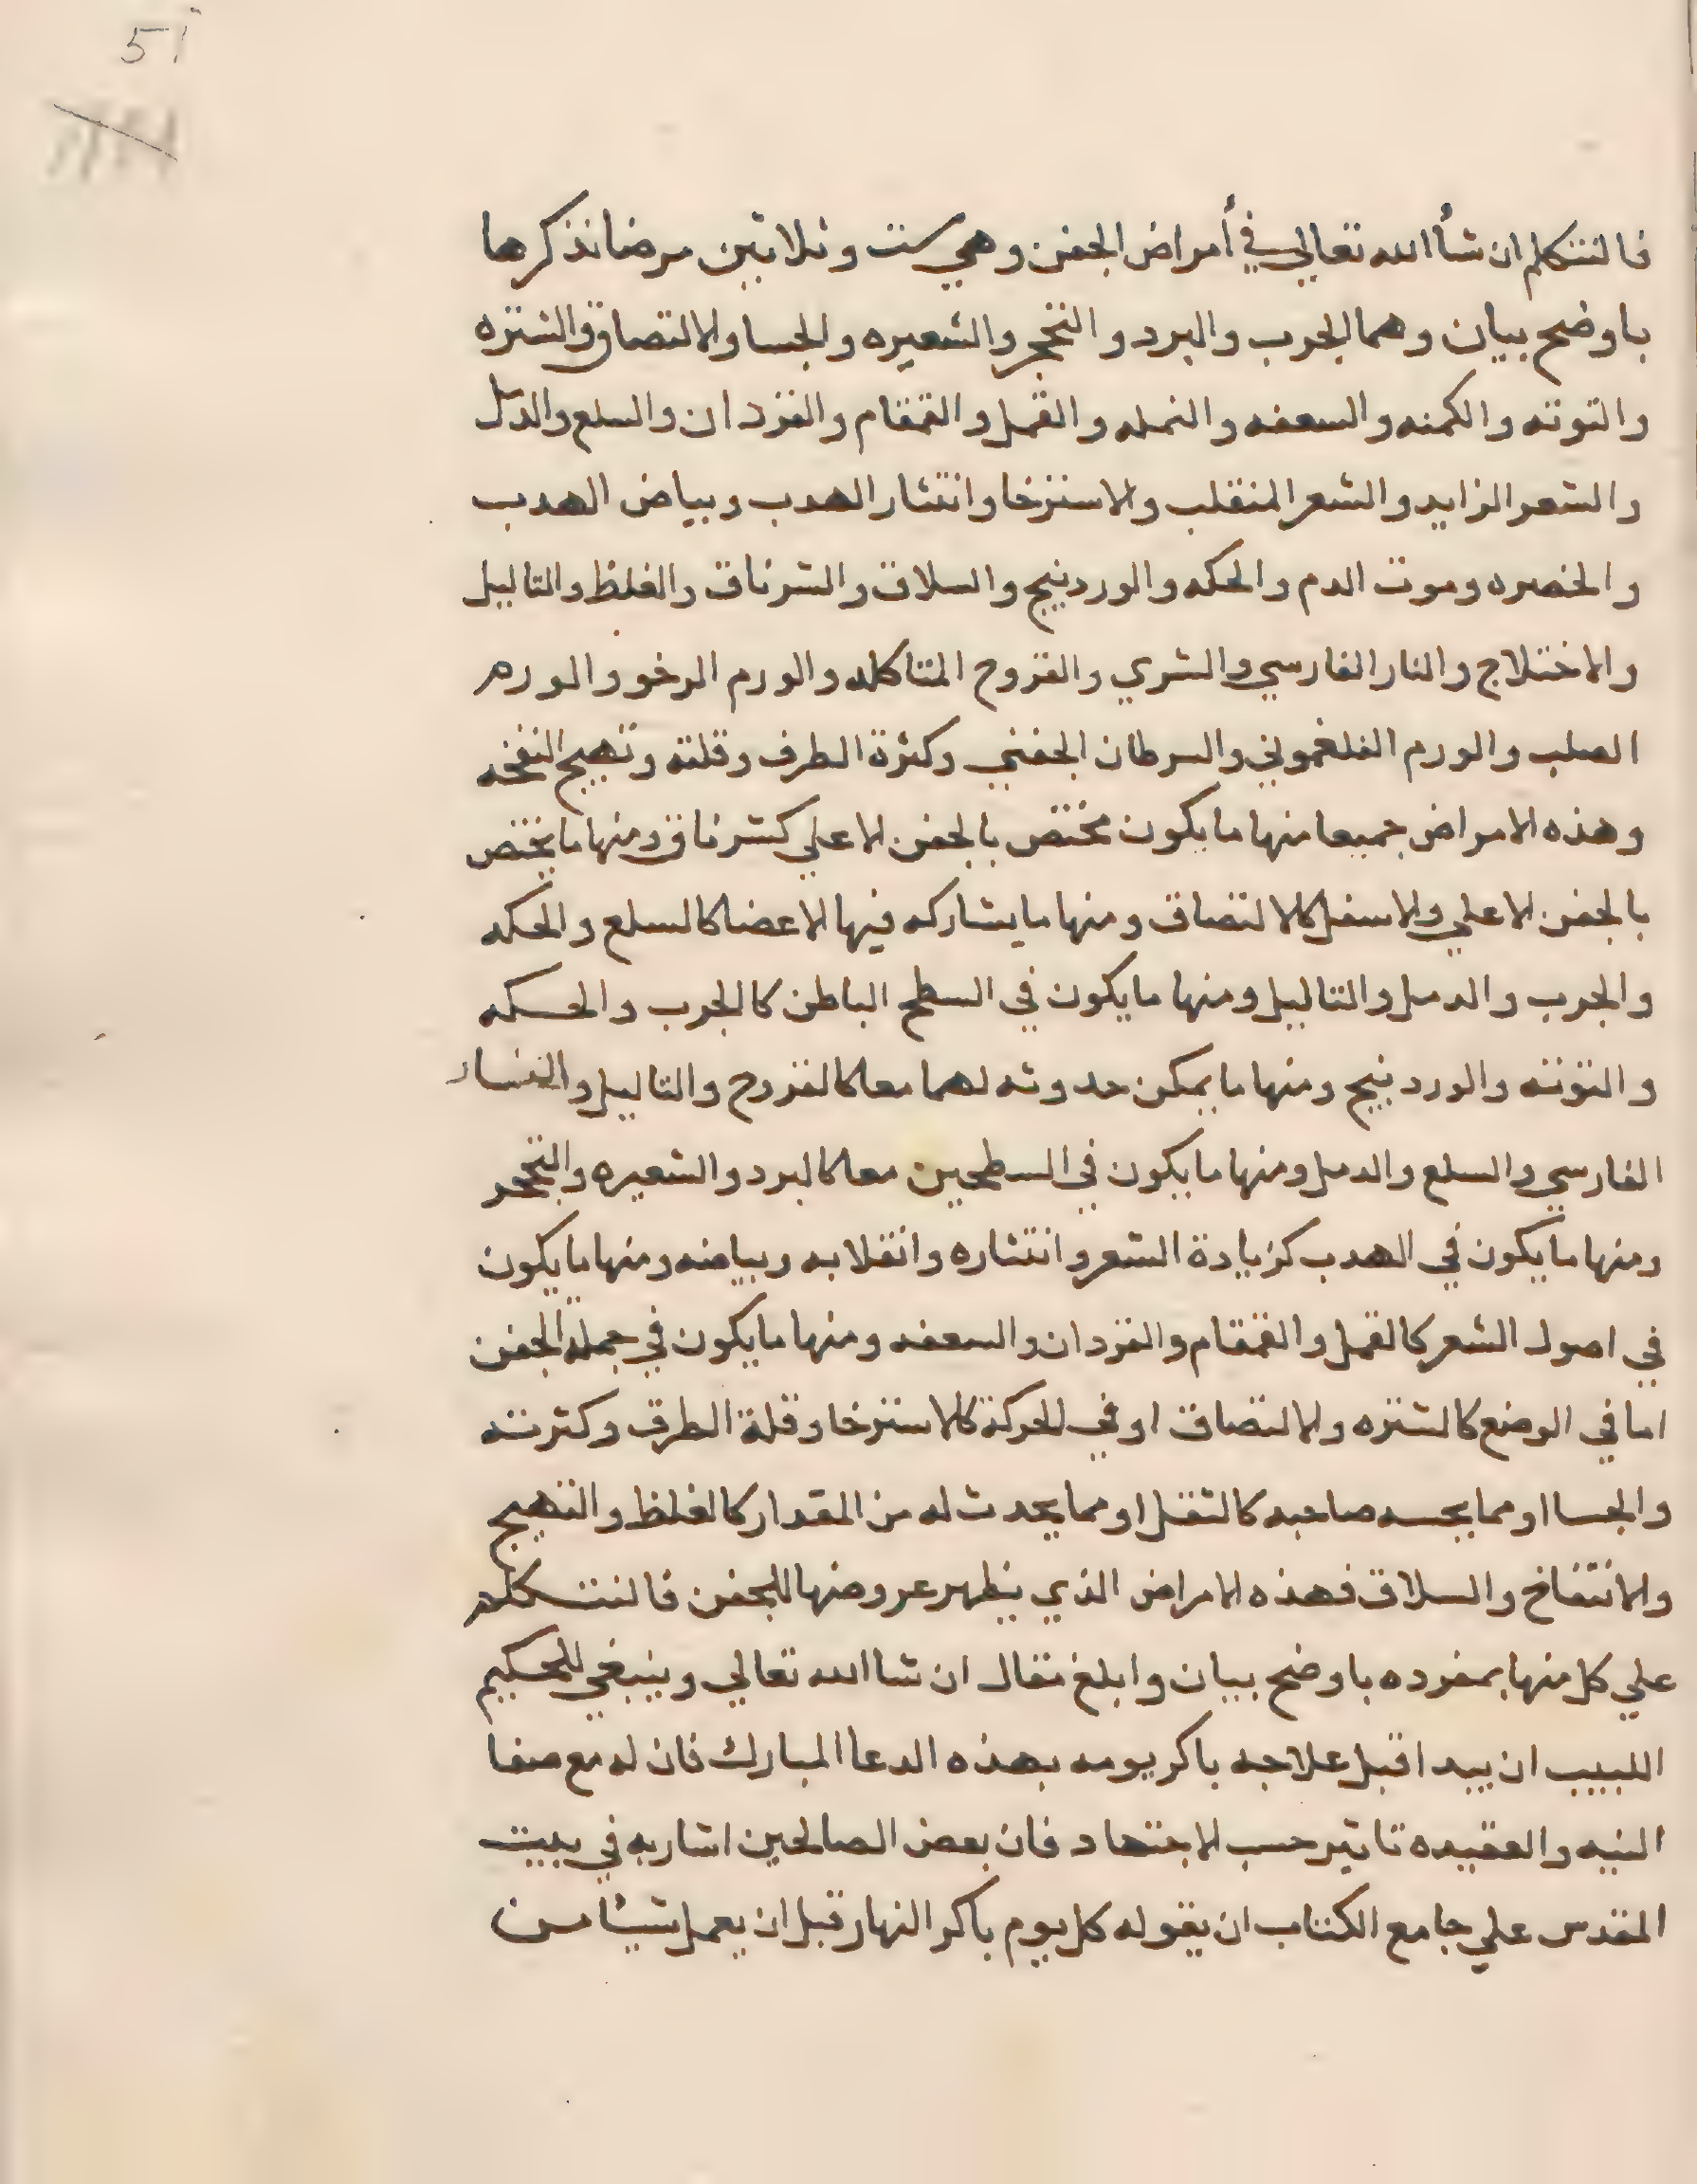 51
فالنتكلم ان شأ الله تعالي في أمراض الجفن وهي ست وثلاثين مرضا نذكرها
باوضح بيان وهما الجرب والبرد والتحجر والشعيره والجسا والالتصاق والشتره
والتوته والكمنه والسعفه والنمله والقمل والقمقام والقردان والسلع والدمل
والشعر الزايد والشعر المنقلب والاسترخا وانتثار الهدب وبياض الهدب
والخضره وموت الدم والحكه والوردينج والسلاق والشرناق والغلظ والتاليل
والاختلاج والنار الفارسي والشري والقروح المتاكله والورم الرخو والورم
الصلب والورم الفلغموني والسرطان الجفني وكثرة الطرف وقلته وتهيج النفخه
وهذه الامراض جميعا منها ما يكون مختص بالجفن الاعلي كشرناق ومنها ما يختص
بالجفن الاعلي والاسفل كالالتصاق ومنها ما يشاركه فيها الاعضا كالسلع والحكه
والجرب والدمل والتاليل ومنها ما يكون في السطح الباطن كالجرب والحكه
والتوته والوردينج ومنها ما يمكن حدوثه لهما معا كالقروح والتاليل والنار
الفارسي والسلع والدمل ومنها ما يكون في السطحين معا كالبرد والشعيره والتحجر
ومنها ما يكون في الهدب كزيادة الشعر وانتثاره وانقلابه وبياضه ومنها ما يكون
في اصول الشعر كالقمل والقمقام والقردان والسعفه ومنها ما يكون في جملة الجفن
اما في الوضع كالشتره والالتصاق او في الحركة كالاسترخا وقلة الطرف وكثرته
والجسا او مما يحسه صاحبه كالثقل او مما يحدث له من المقدار كالغلظ والتهيج
والانتفاخ والسلاق فهذه الامراض الذي يظهر عروضها للجفن فالنتكلم
علي كل منها بمفرده باوضح بيان وابلغ مقال ان شا الله تعالي وينبغي للحكيم
اللبيب ان يبدا قبل علاجه باكر يومه بهذه الدعا المبارك فان له مع صفا
النيه والعقيده تاثير حسب الاجتهاد فان بعض الصالحين اشار به في بيت
المقدس علي جامع الكتاب ان يقوله كل يوم باكر النهار قبل ان يعمل شيئا من